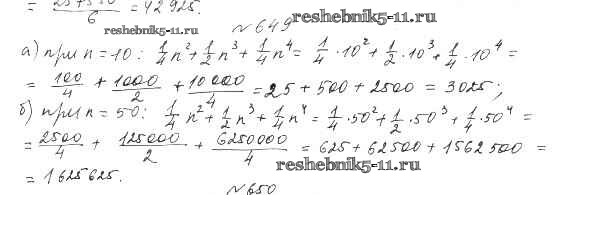 = 257550/6 = 42925.
№649
reshebnik5-11.ru
reshebnik5-11.ru
а) при n=10: 1/4 n² + 1/2 n³ + 1/4 n⁴ = 1/4 · 10² + 1/2 · 10³ + 1/4 · 10⁴ =
= 100/4 + 1000/2 + 10000/4 = 25 + 500 + 2500 = 3025;
б) при n=50: 1/4 n² + 1/2 n³ + 1/4 n⁴ = 1/4 · 50² + 1/2 · 50³ + 1/4 · 50⁴ =
= 2500/4 + 125000/2 + 6250000/4 = 625 + 62500 + 1562500 =
reshebnik5-11.ru
= 1625625.
№650